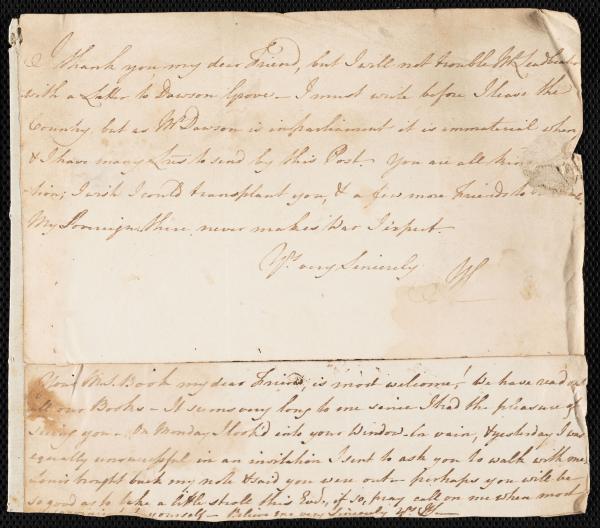 I thank you, my dear Friend, but I will not trouble Mr Leadbeater
with a Letter to Dawson Grove – I must write before I leave the
Country, but as Mr Dawson is in parliament it is immaterial when
& I have many Lrs to send by this Post. You are all kind
tion; I wish I could transplant you, & a few more Friends to
My Sovereign there never makes War I expect.
Yrs very Sincerely
Your Ms. Book my dear Friend, is most welcome! We have read out
all our Books – It seems very long to me since I had the pleasure of
seeing you – On Monday I look'd into your Window – In vain, & yesterday I was
equally unsuccessful in an invitation I sent to ask you to walk with me,
brought back my note & said you were out – perhaps you will be
so good as to take a little stroll this Eve, if so, pray call on me when most
to yourself – Believe me very Sincerely yrs